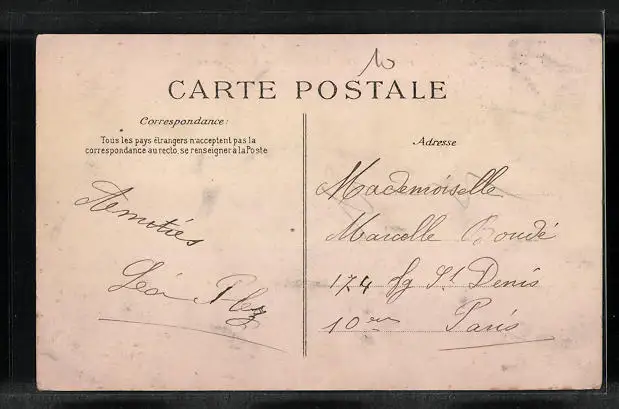 10
CARTE POSTALE
Correspondance:
Tous les pays étrangers n'acceptent pas la
correspondance au recto, se renseigner à la Poste
Adresse
Amitiés
Léa
Mademoiselle
Marcelle Boudé
174 fg St Denis
10em Paris